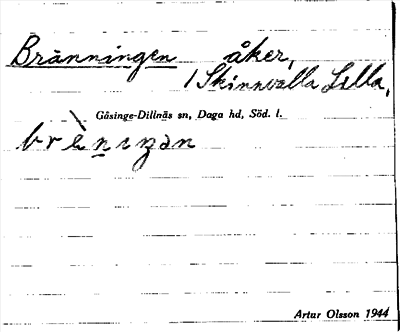 Bränningen åker,
/ Skinnvalla Lilla,
Gåsinge-Dillnäs sn, Daga hd, Söd. l.
brènıŋan
Artur Olsson 1944